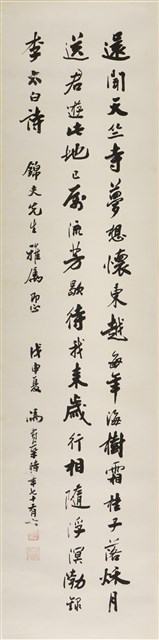 還聞天竺寺夢想懷東越每年海樹霜桂子落秋月
送君遊此地已屬流芳歇待我來歲行相隨浮溟渤錄
李太白詩 錦夫先生雅屬即正 戊申夏 馮 時年七十有六